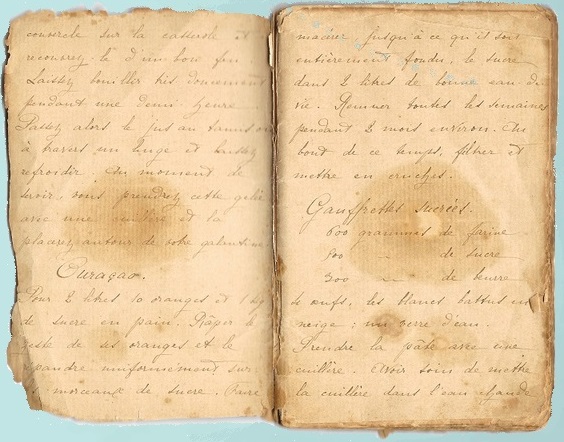 couvercle sur la casserole et
recouvrez le d'un bon feu
Laissez bouillir très doucement
pendant une demi heure
Passez alors le jus au tamis ou
à travers un linge et laissez
refroidir. Au moment de
servir vous prendrez cette gelée
avec une cuillère et la
placerez autour de votre galantine
Curaçao.
Pour 2 litres 10 oranges et 1 kg
de sucre en pain. Râper le
zeste de ses oranges et le
répandre uniformément sur
morceaux de sucre. Faire
macérer jusqu'à ce qu'il soit
entièrement fondu, le sucre
dans 2 litres de bonne eau de
vie. Remuer toutes les semaines
pendant 2 mois environ. Au
bout de ce temps, filtrer et
mettre en cruches.
Gauffrettes sucrées.
600 grammes de farine
500 — de sucre
300 — de beurre
œufs, les blancs battus en
neige ; un verre d'eau.
Prendre la pâte avec une
cuillère. Avoir soin de mettre
la cuillère dans l'eau chaude